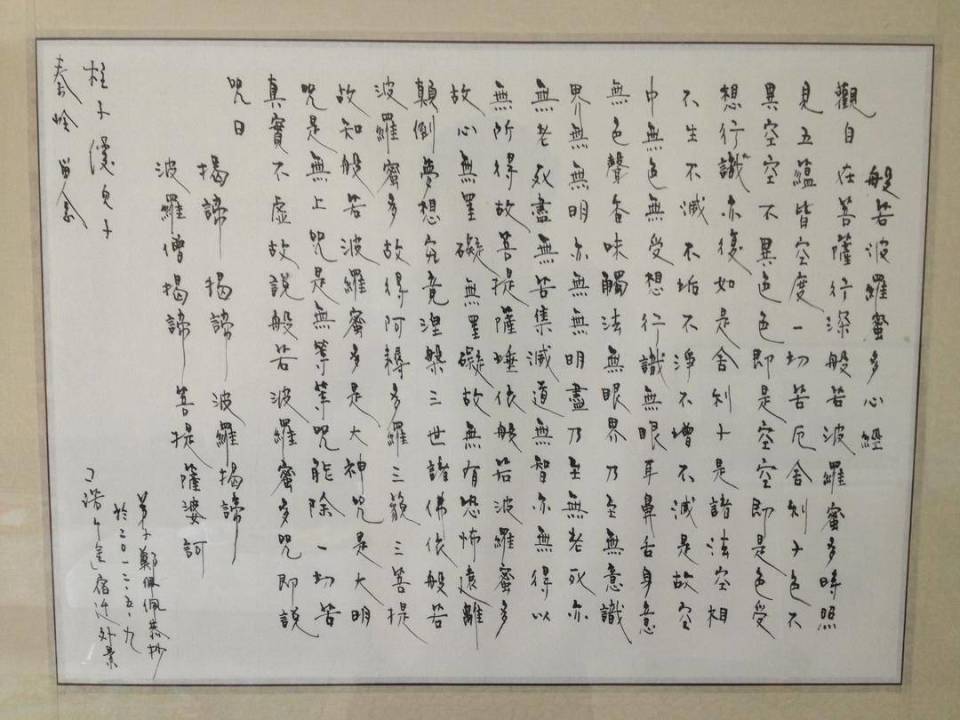 般若波羅蜜多心經
觀自在菩薩行深般若波羅蜜多時照
見五蘊皆空度一切苦厄舍利子色不
異空空不異色色即是空空即是色受
想行識亦復如是舍利子是諸法空相
不生不滅不垢不淨不增不減是故空
中無色無受想行識無眼耳鼻舌身意
無色聲香味觸法無眼界乃至無意識
界無無明亦無無明盡乃至無老死亦
無老死盡無苦集滅道無智亦無得以
無所得故菩提薩埵依般若波羅蜜多
故心無罣礙無罣礙故無有恐怖遠離
顛倒夢想究竟涅槃三世諸佛依般若
波羅蜜多故得阿耨多羅三藐三菩提
故知般若波羅蜜多是大神咒是大明
咒是無上咒是無等等咒能除一切苦
真實不虛故說般若波羅蜜多咒即說
咒曰
揭諦 揭諦 波羅揭諦
波羅僧揭諦 菩提薩婆訶
弟子鄭佩佩恭抄
於二0一三.五.九
宿迁外景
留念